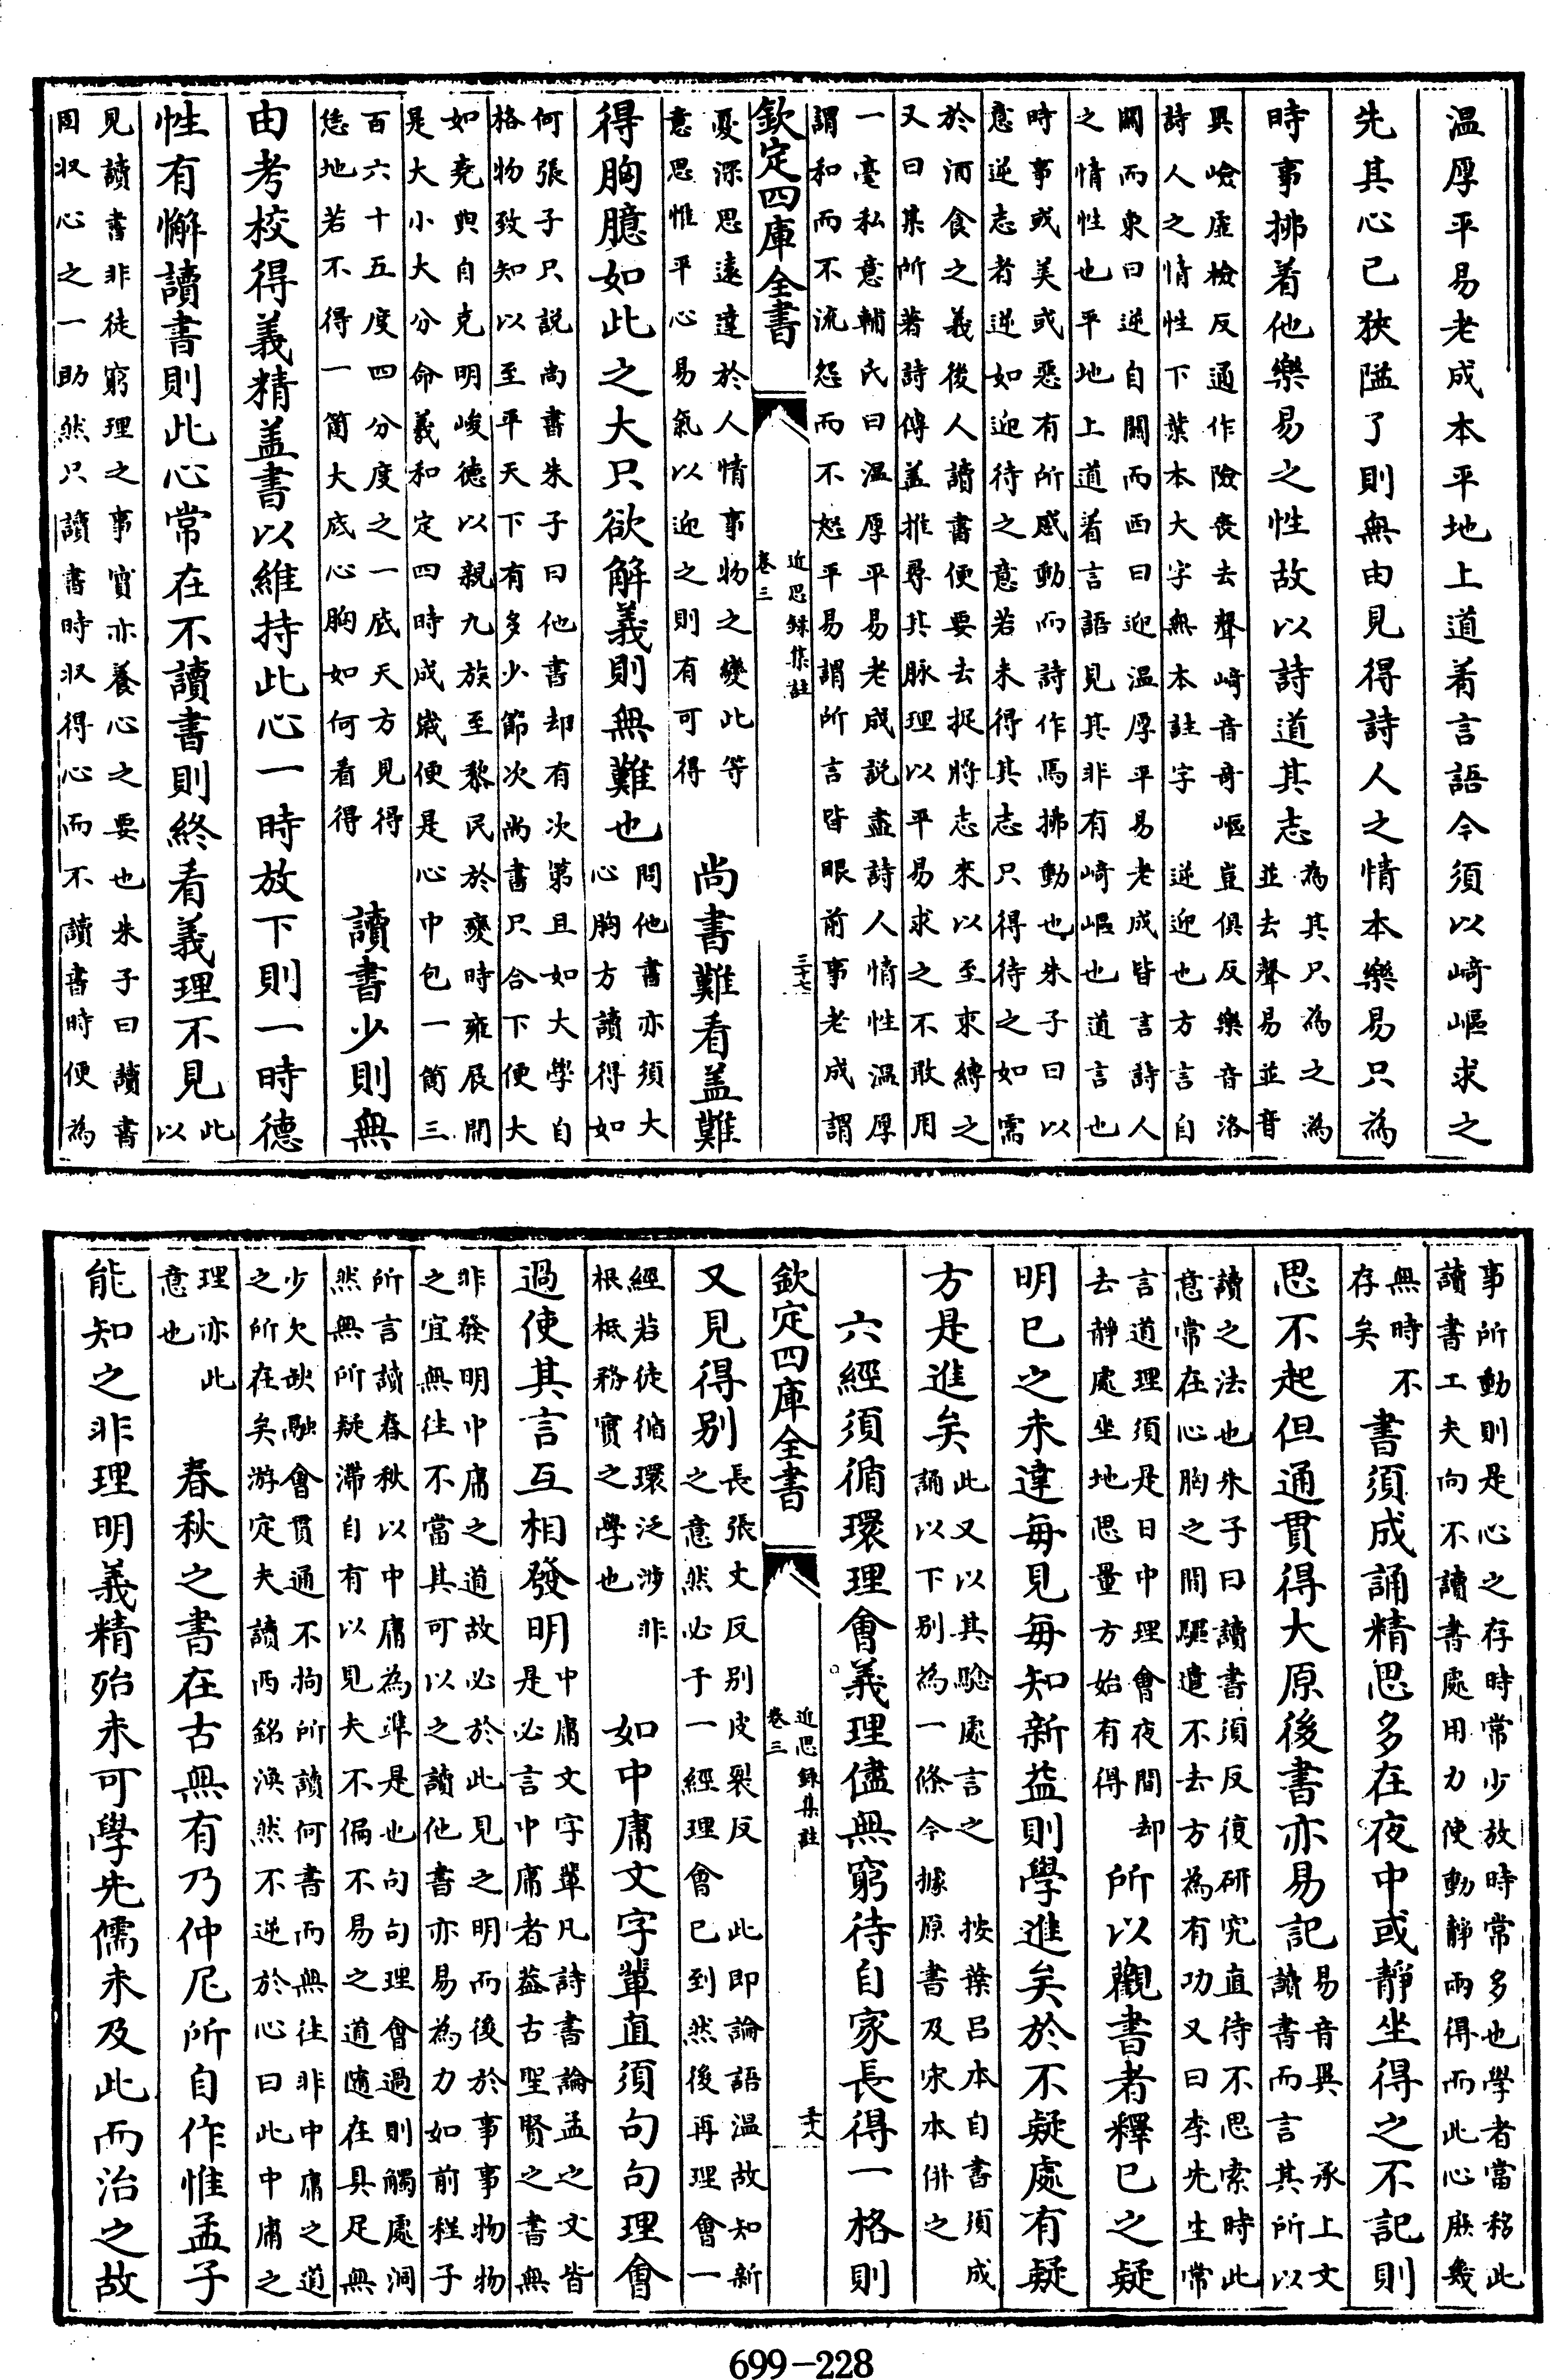 温厚平易老成本平地上道着言語今須以﨑嶇求之
先其心已狹隘了則無由見得詩人之情本樂易只為
時事拂着他樂易之性故以詩道其志為其只為之為並去聲易並音
異嶮虛檢反通作險喪去聲﨑音奇嶇豈俱反樂音洛
詩人之情性下葉本大字無本註字逆迎也方言自
關而東曰逆自關而西曰迎温厚平易老成皆言詩人
之情性也平地上道着言語見其非有﨑嶇也道言也
時事或美或惡有所感動而詩作焉拂動也朱子曰以
意逆志者逆如迎待之意若未得其志只得待之如需
於酒食之義後人讀書便要去捉將志來以至束縛之
又曰某所著詩傳蓋推尋其脉理以平易求之不敢用
一毫私意輔氏曰温厚平易老成説盡詩人情性温厚
謂和而不流怨而不怒平易謂所言皆眼前事老成謂
欽定四庫全書
近思録集註
卷三
三十七
憂深思遠達於人情事物之變此等
意思惟平心易氣以迎之則有可得
尚書難看蓋難
得胸臆如此之大只欲解義則無難也問他書亦須大心胸方讀得如
何張子只説尚書朱子曰他書却有次第且如大學自
格物致知以至平天下有多少節次尚書只合下便大
如堯典自克明峻德以親九族至黎民於變時雍展開
是大小大分命羲和定四時成歲便是心中包一箇三
百六十五度四分度之一底天方見得
恁地若不得一箇大底心胸如何看得
讀書少則無
由考校得義精蓋書以維持此心一時放下則一時德
性有懈讀書則此心常在不讀書則終看義理不見此以
見讀書非徒窮理之事實亦養心之要也朱子曰讀書
固収心之一助然只讀書時収得心而不讀書時便為
事所動則是心之存時常少放時常多也學者當移此
讀書工夫向不讀書處用力使動靜兩得而此心庶幾
無時不
存矣
書須成誦精思多在夜中或靜坐得之不記則
思不起但通貫得大原後書亦易記易音異承上文讀書而言其所以
讀之法也朱子曰讀書須反復研究直待不思索時此
意常在心胸之間驅遣不去方為有功又曰李先生常
言道理須是日中理會夜間却
去靜處坐地思量方始有得
所以觀書者釋已之疑
明已之未達毎見毎知新益則學進矣於不疑處有疑
方是進矣此又以其騐處言之按葉呂本自書須成
誦以下別為一條今據原書及宋本併之
六經須循環理會義理儘無窮待自家長得一格則
欽定四庫全書
近思録集註
卷三
三十八
又見得别長張丈反别皮裂反此即論語温故知新
之意然必于一經理會已到然後再理會一
經若徒循環泛涉非
根柢務實之學也
如中庸文字輩直須句句理會
過使其言互相發明中庸文字輩凡詩書論孟之文皆是必言中庸者葢古聖賢之書無
非發明中庸之道故必於此見之明而後於事事物物
之宜無往不當其可以之讀他書亦易為力如前程子
所言讀春秋以中庸為準是也句句理會過則觸處洞
然無所疑滯自有以見夫不偏不易之道隨在具足無
少欠缺融會貫通不拘所讀何書而無往非中庸之道
之所在矣游定夫讀西銘渙然不逆於心曰此中庸之
理亦此
意也
春秋之書在古無有乃仲尼所自作惟孟子
能知之非理明義精殆未可學先儒未及此而治之故
699-228